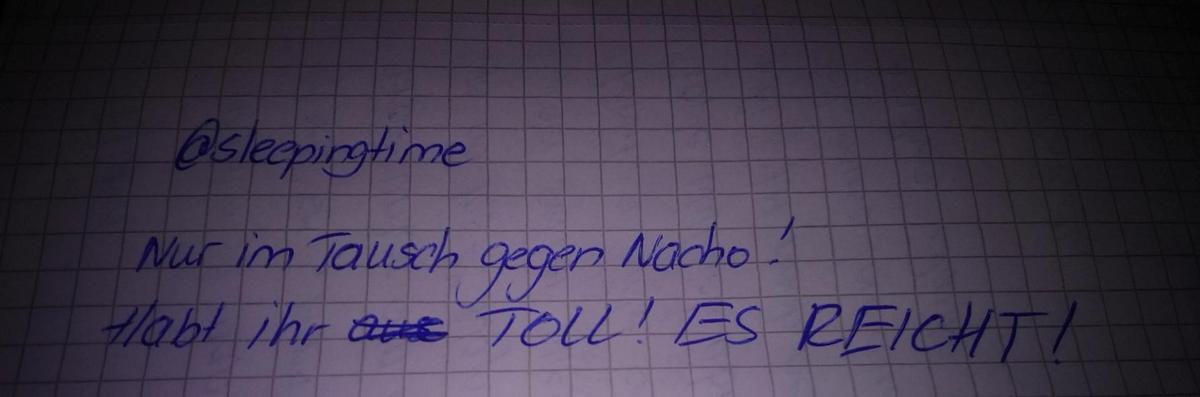 @sleepingtime
Nur im Tausch gegen Nacho!
Habt ihr aus TOLL! ES REICHT!